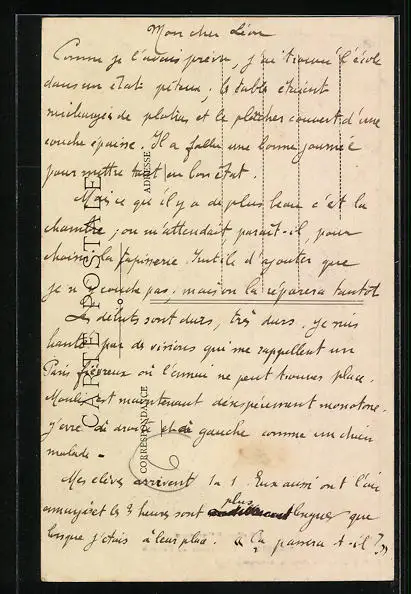 Mon cher Léon
Comme je l'avais prévu, j'ai trouvé l'école
dans un état piteux; les tables étaient
de plâtras et le plancher couvert d'une
couche épaisse. Il a fallu une bonne journée
pour mettre tout en bon état.
Mais ce qu'il y a de plus beau c'est la
chambre, on m'attendait paraît-il, pour
choisir la tapisserie. Inutile d'ajouter que
je n'y couche pas. mais on la réparera tantôt
Les débuts sont durs, très durs. Je suis
hanté par des visions qui me rappellent un
Paris fiévreux où l'ennui ne peut trouver place.
est maintenant désespérément monotone.
j'erre de droite et de gauche comme un chien
malade -
Mes élèves arrivent 1 à 1. Eux aussi ont l'air
et les 3 heures sont plus longues que
lorsque j'étais à leur place. Ça passera t-il?
CARTE POSTALE
CORRESPONDANCE
ADRESSE